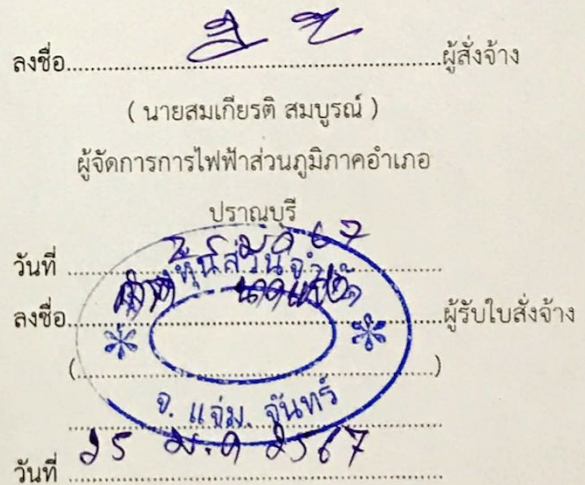 ลงชื่อ...........................................................ผู้สั่งจ้าง
( นายสมเกียรติ สมบูรณ์ )
ผู้จัดการการไฟฟ้าส่วนภูมิภาคอำเภอ
ปราณบุรี
วันที่ ...........................................................
ห้างหุ้นส่วนจำกัด
ลงชื่อ...........................................................ผู้รับใบสั่งจ้าง
(...........................................................)
จ. แจ่ม. จันทร์
วันที่ 25 ม.ค 2567